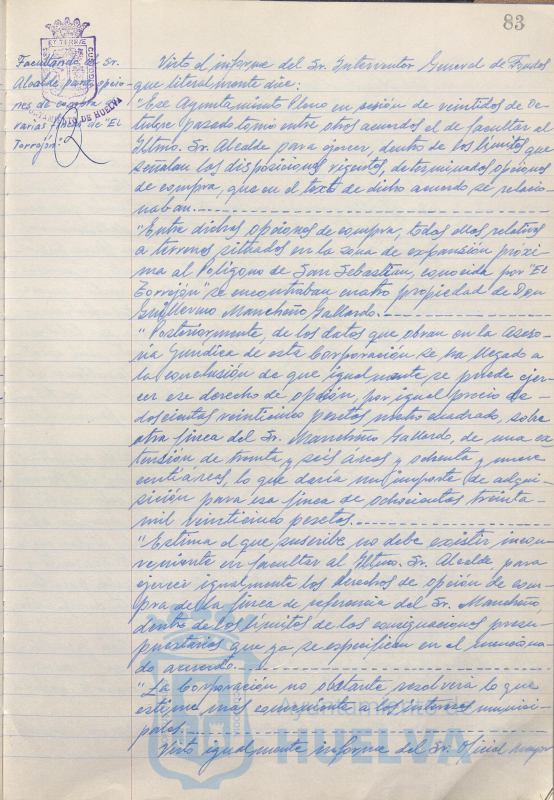 83
Facultando al Sr.
Alcalde para opcio-
nes de compra
varias fincas de "El
Torrejón".
AYUNTAMIENTO DE HUELVA
Visto el informe del Sr. Interventor General de Fondos
que literalmente dice:
"Ese Ayuntamiento Pleno en sesión de veintidos de Oc-
tubre pasado tomó entre otros acuerdos el de facultar al
Iltmo. Sr. Alcalde para ejercer, dentro de los límites que
señalan las disposiciones vigentes, determinadas opciones
de compra, que en el texto de dicho acuerdo se relacio-
naban.
"Entre dichas opciones de compra, todas ellas relativas
a terrenos situados en la zona de expansión próxi-
ma al Polígono de San Sebastián, conocida por "El
Torrejón" se encontraban cuatro propiedad de Don
Guillermo Mancheño Gallardo.
"Posteriormente, de los datos que obran en la Aseso-
ría Jurídica de esta Corporación se ha llegado a
la conclusión de que igualmente se puede ejer-
cer ese derecho de opción, por igual precio de
doscientas veinticinco pesetas metro cuadrado, sobre
otra finca del Sr. Mancheño Gallardo, de una ex-
tensión de treinta y seis áreas y ochenta y nueve
centiáreas, lo que daría un importe de adqui-
sición para esa finca de ochocientas treinta
mil veinticinco pesetas.
"Estima el que suscribe no debe existir incon-
veniente en facultar al Iltmo. Sr. Alcalde para
ejercer igualmente los derechos de opción de com-
pra de la finca de referencia del Sr. Mancheño,
dentro de los límites de las consignaciones presu-
puestarias que ya se especifican en el menciona-
do acuerdo.
"La Corporación no obstante resolverá lo que
estime más conveniente a los intereses munici-
pales.
Visto igualmente informe del Sr. Oficial Mayor
HUELVA